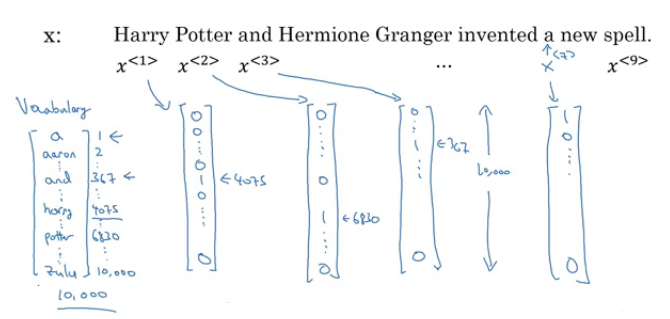 x: Harry Potter and Hermione Granger invented a new spell.
x<1> x<2> x<3> ... x<7> x<9>
Vocabulary
a 1 ←
aaron 2
⋮ ⋮
and 367 ←
⋮ ⋮
harry 4075
⋮ ⋮
potter 6830
⋮ ⋮
zulu 10,000
10,000
0 0 ⋮ 0 1 0 ⋮ 0 ← 4075
0 ⋮ 0 1 ⋮ 0 ← 6830
0 ⋮ 1 ⋮ 0 ← 367
10,000
1 0 ⋮ 0